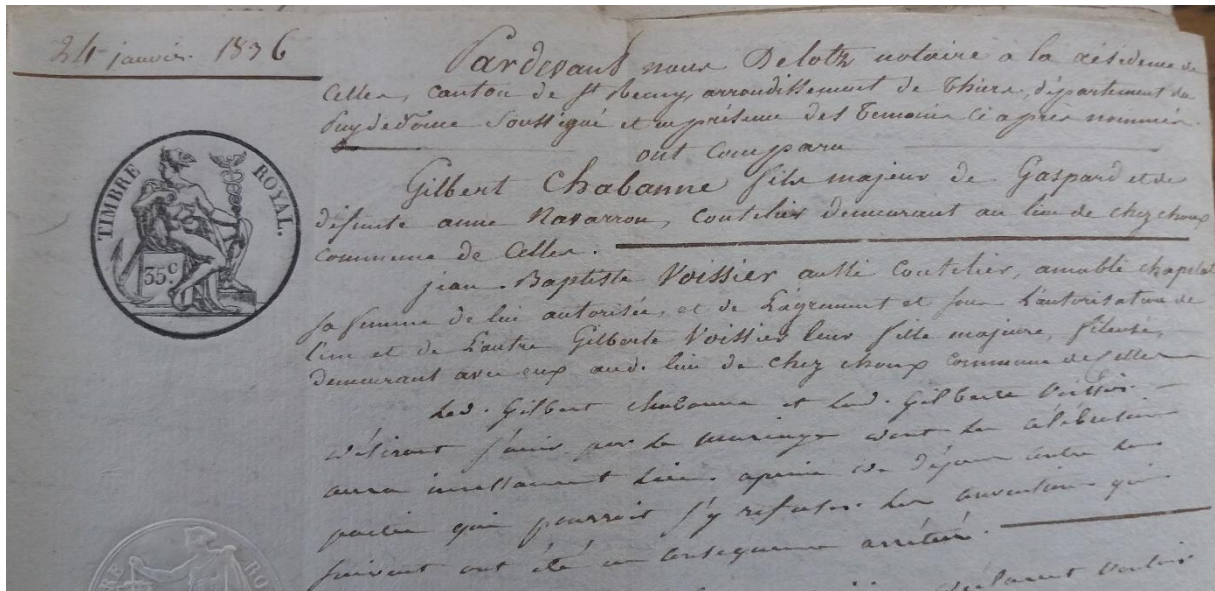 24 janvier 1836
Pardevant nous Delotz notaire à la résidence de
Celles, canton de St Remy, arrondissement de Thiers, département du
Puy de Dôme soussigné et en présence des témoins ci après nommés.
ont comparu
Gilbert Chabanne fils majeur de Gaspard et de
défunte anne Navarron, coutelier demeurant au lieu de chez choux
commune de Celles.
jean Baptiste Voissier aussi coutelier, amable chapelat
sa femme de lui autorisée, et de l'agrément et sous l'autorisation de
l'un et de l'autre Gilberte Voissier leur fille majeure, fileuse,
demeurant avec eux aud. lieu de chez choux commune de Celles
Led. Gilbert chabanne et lad. Gilberte Voissier
désirant s'unir par le mariage dont la célébration
aura incessament lieu apeine de dépens contre la
partie qui pourrait s'y refuser. les conventions qui
suivent ont été en conséquence arrêtées.
déclarent vouloir
TIMBRE ROYAL.
35c.